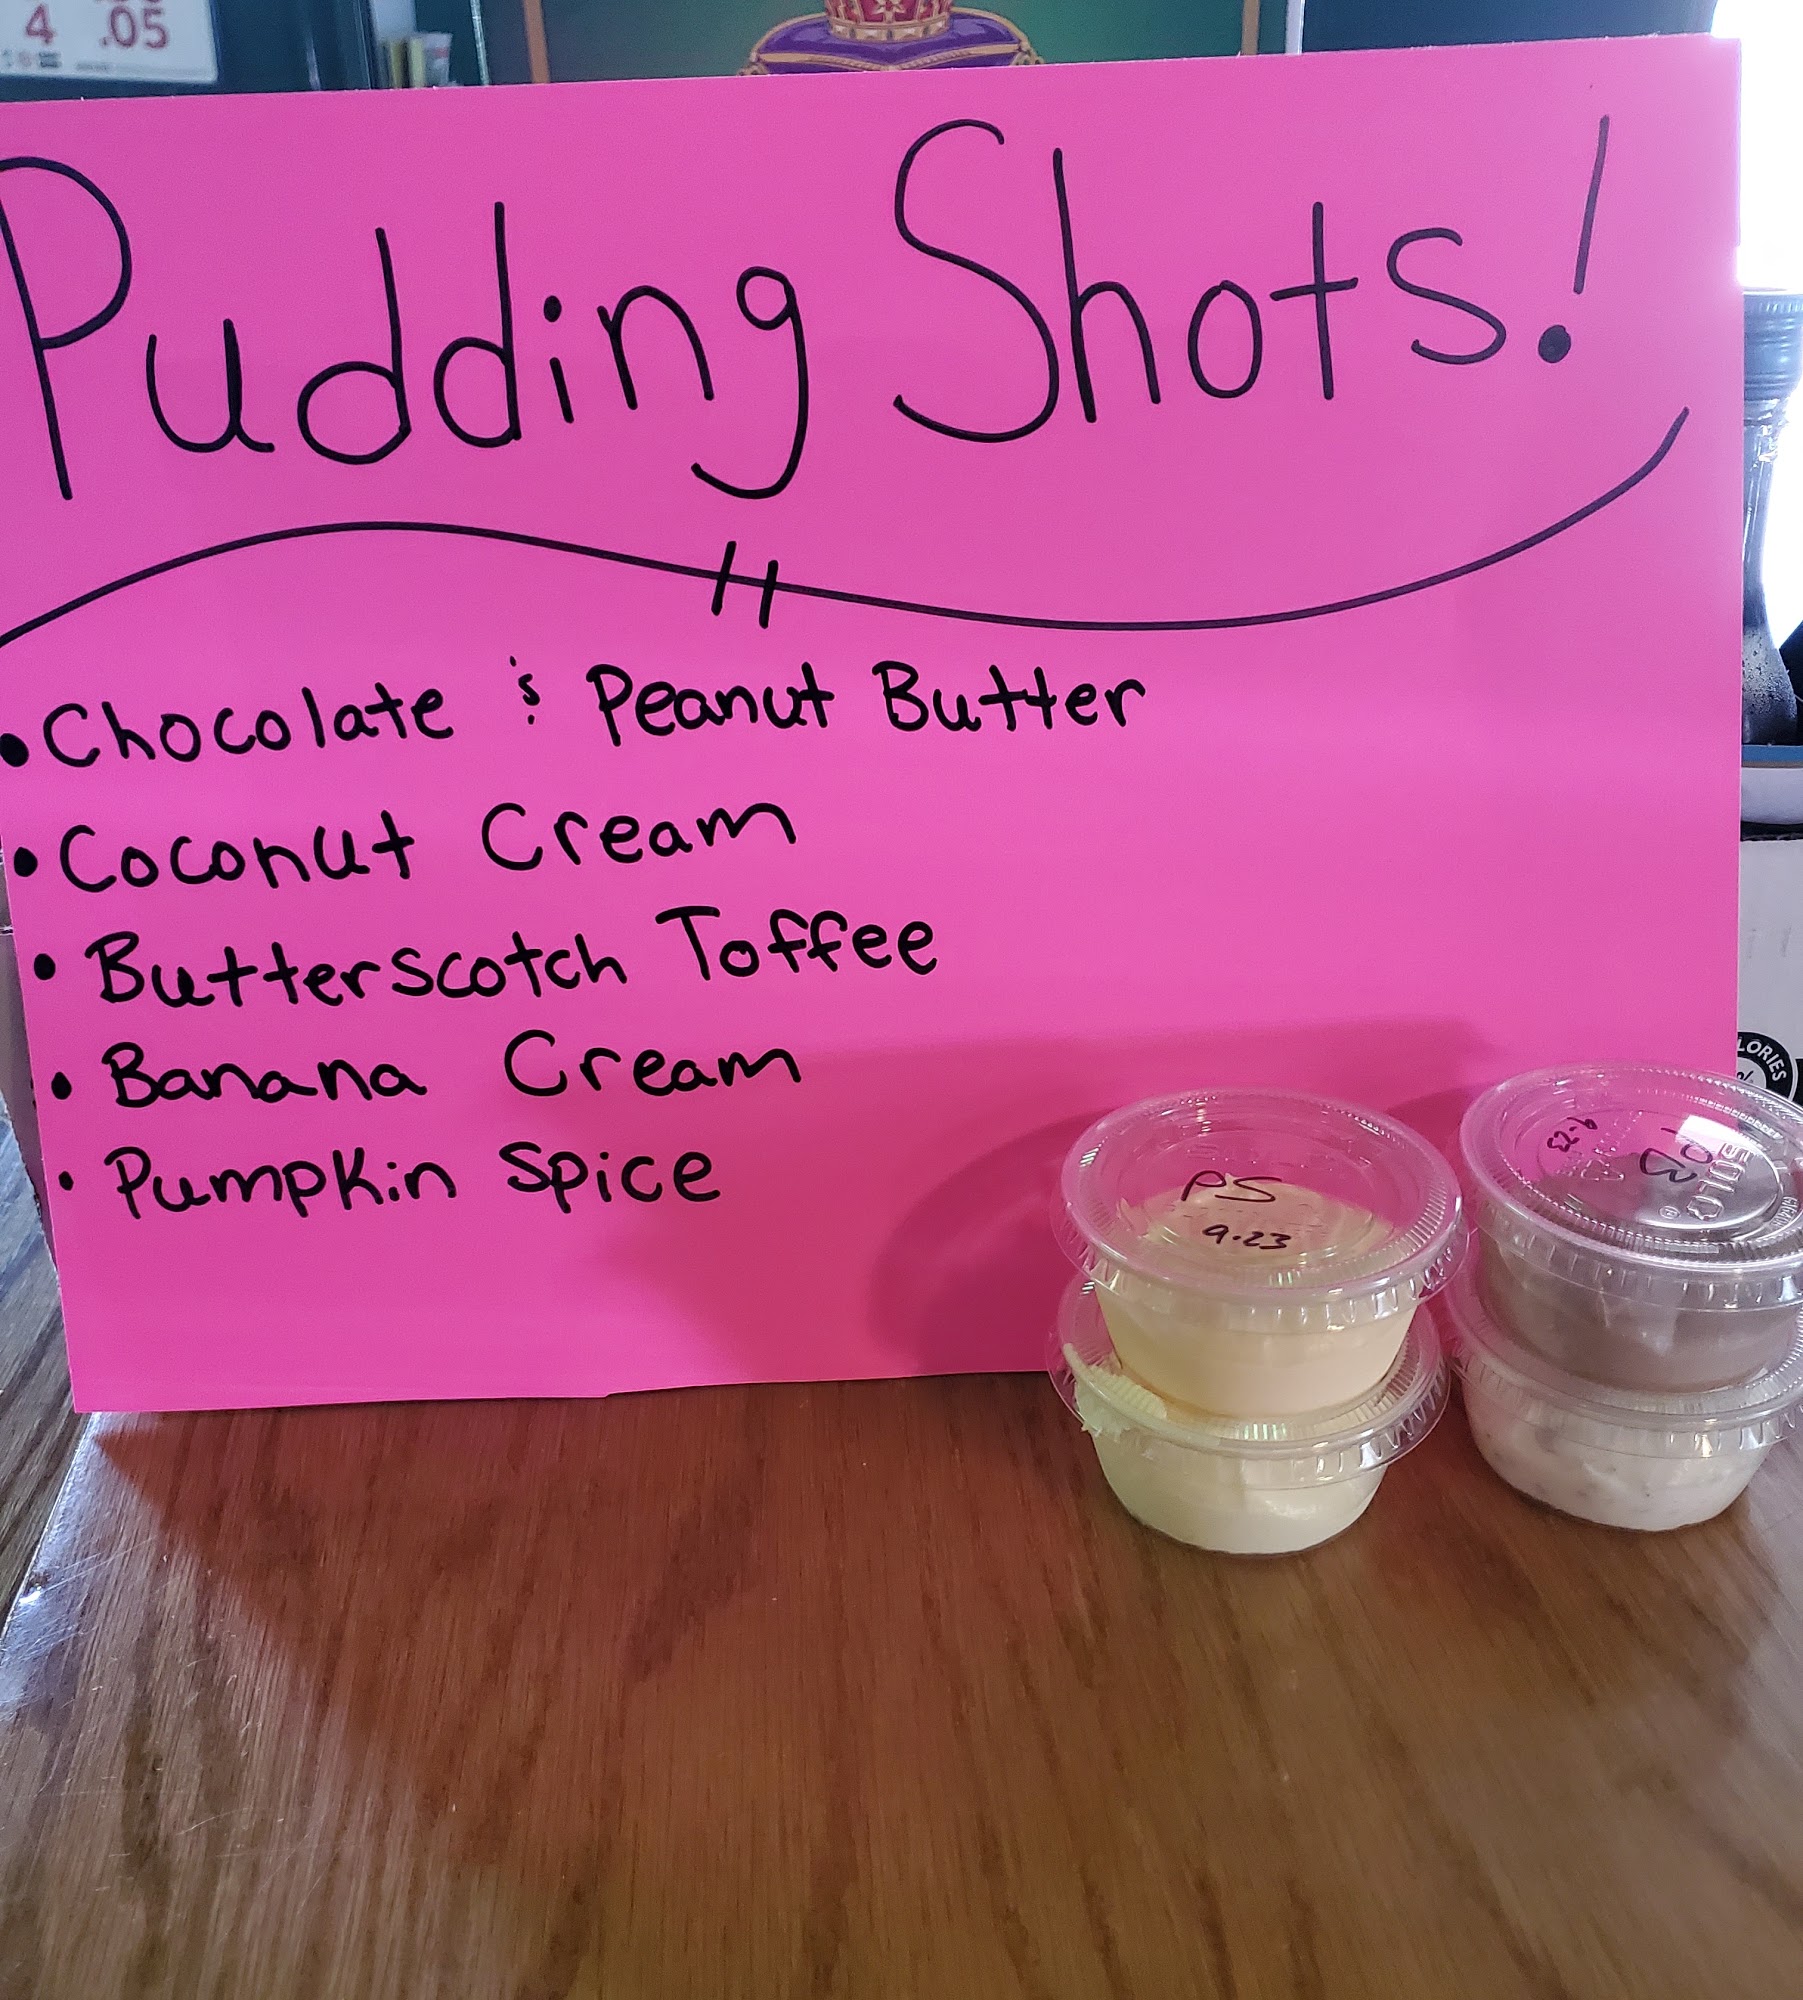 4 .05
Pudding Shots!
• Chocolate & Peanut Butter
• Coconut Cream
• Butterscotch Toffee
• Banana Cream
• Pumpkin Spice
PS
9.23
9-23
PB
SOLO
LORIES
%